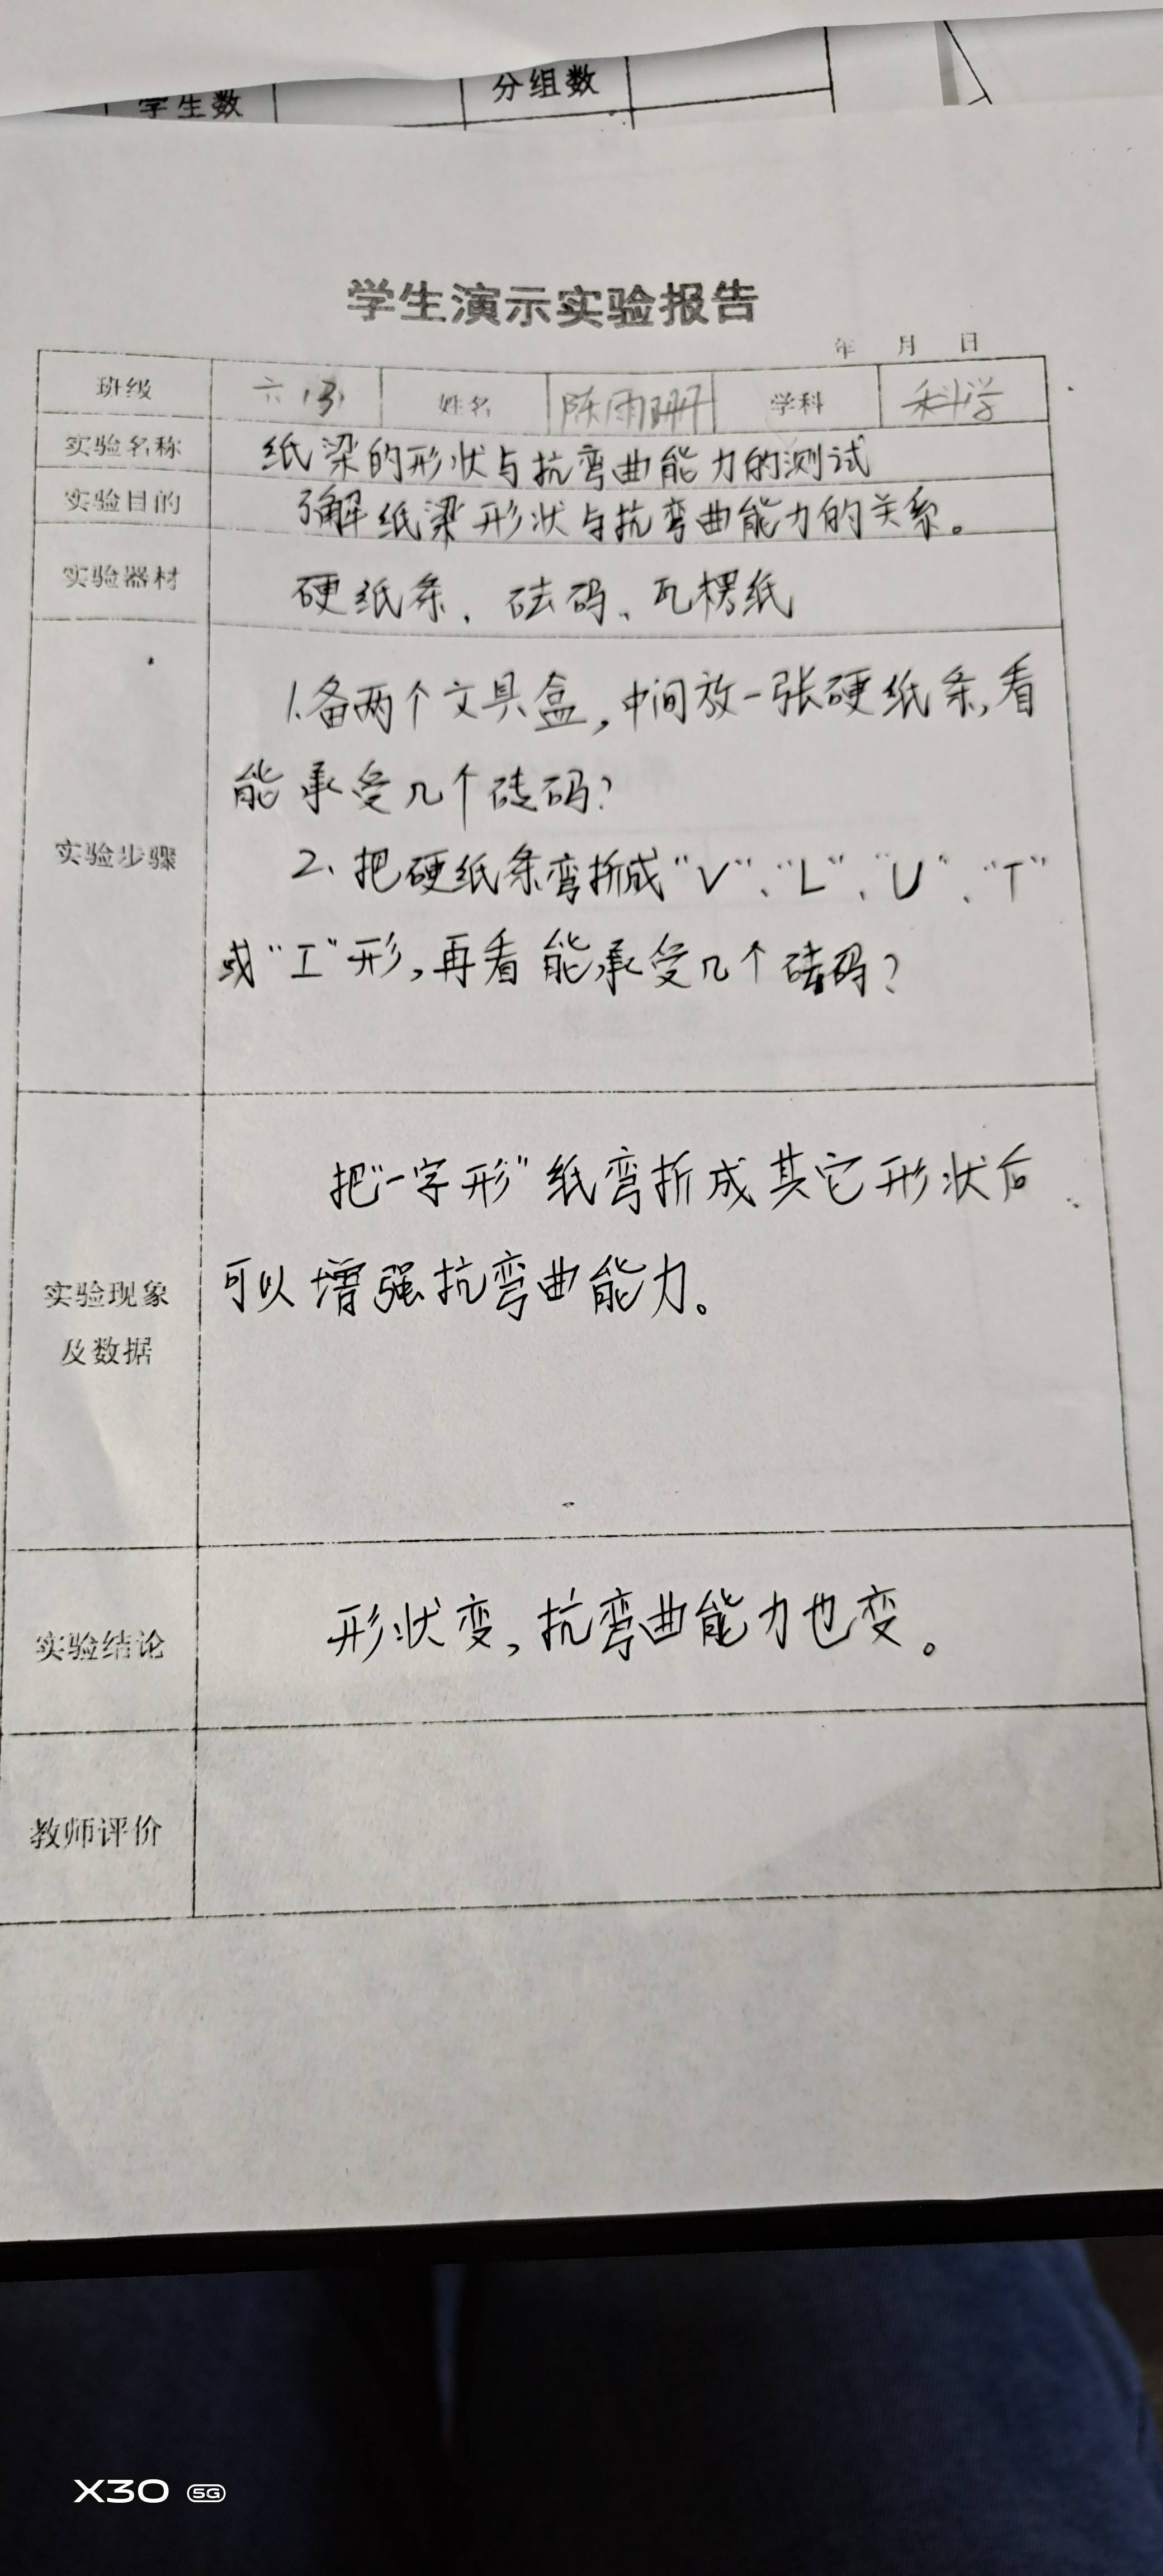 学生数 分组数
学生演示实验报告
年 月 日
班级 六(3) 姓名 陈雨珊 学科 科学
实验名称 纸梁的形状与抗弯曲能力的测试
实验目的 了解纸梁形状与抗弯曲能力的关系。
实验器材 硬纸条、砝码、瓦楞纸
1.备两个文具盒,中间放一张硬纸条,看
能承受几个砝码?
实验步骤
2、把硬纸条弯折成“V”、“L”、“U”、“T”
或“工”形,再看能承受几个砝码?
把“一字形”纸弯折成其它形状后
可以增强抗弯曲能力。
实验现象
及数据
实验结论 形状变,抗弯曲能力也变。
教师评价
X30 5G